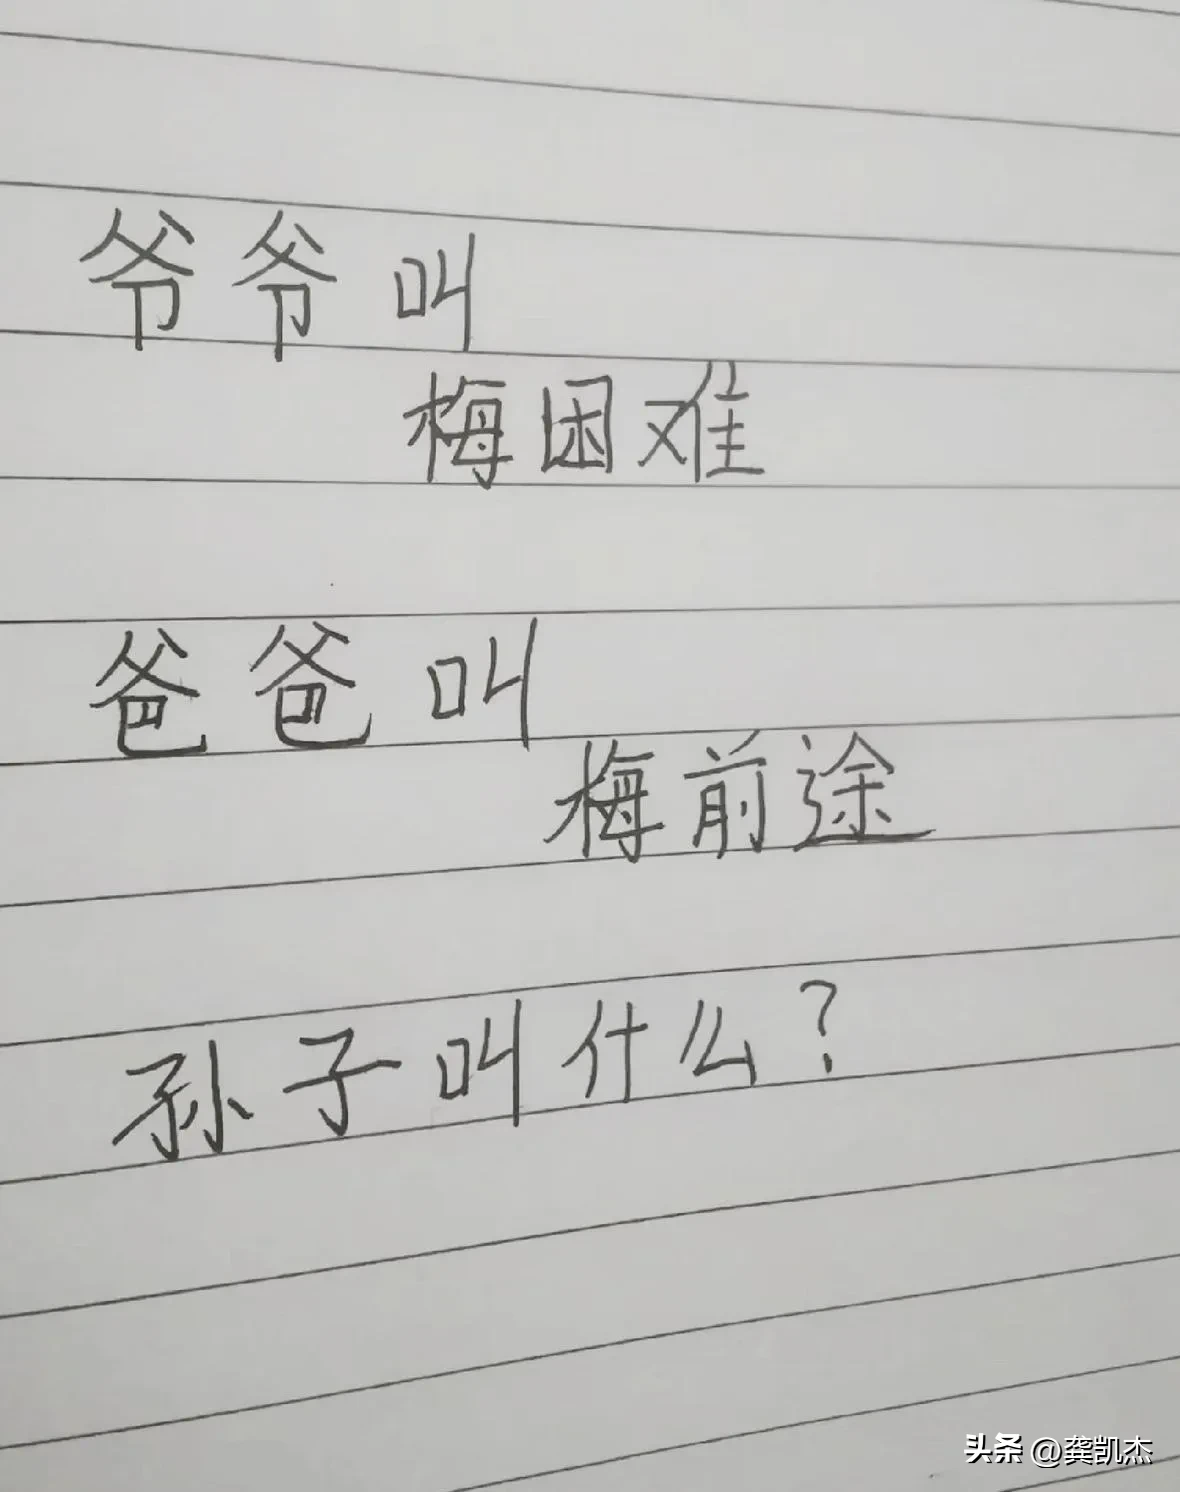 爷爷叫
梅困难
爸爸叫
梅前途
孙子叫什么?
头条 @龚凯杰